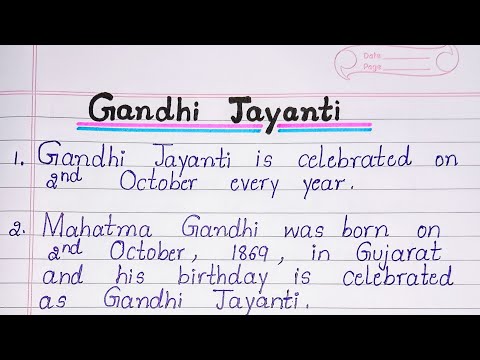 Date
Page
Gandhi Jayanti
1. Gandhi Jayanti is celebrated on
2nd October every year.
2. Mahatma Gandhi was born on
2nd October, 1869, in Gujarat
and his birthday is celebrated
as Gandhi Jayanti.